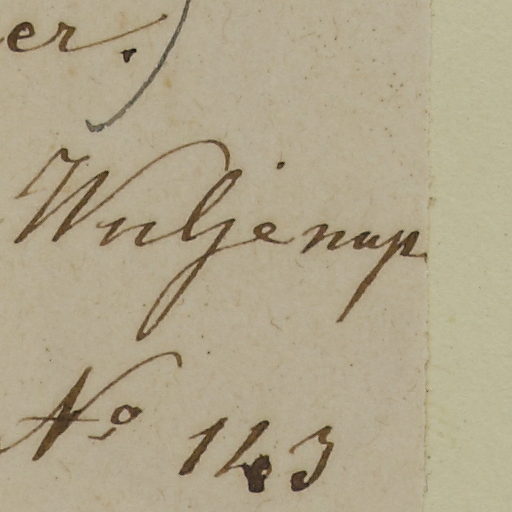 er.)
Wuljenup
No 143